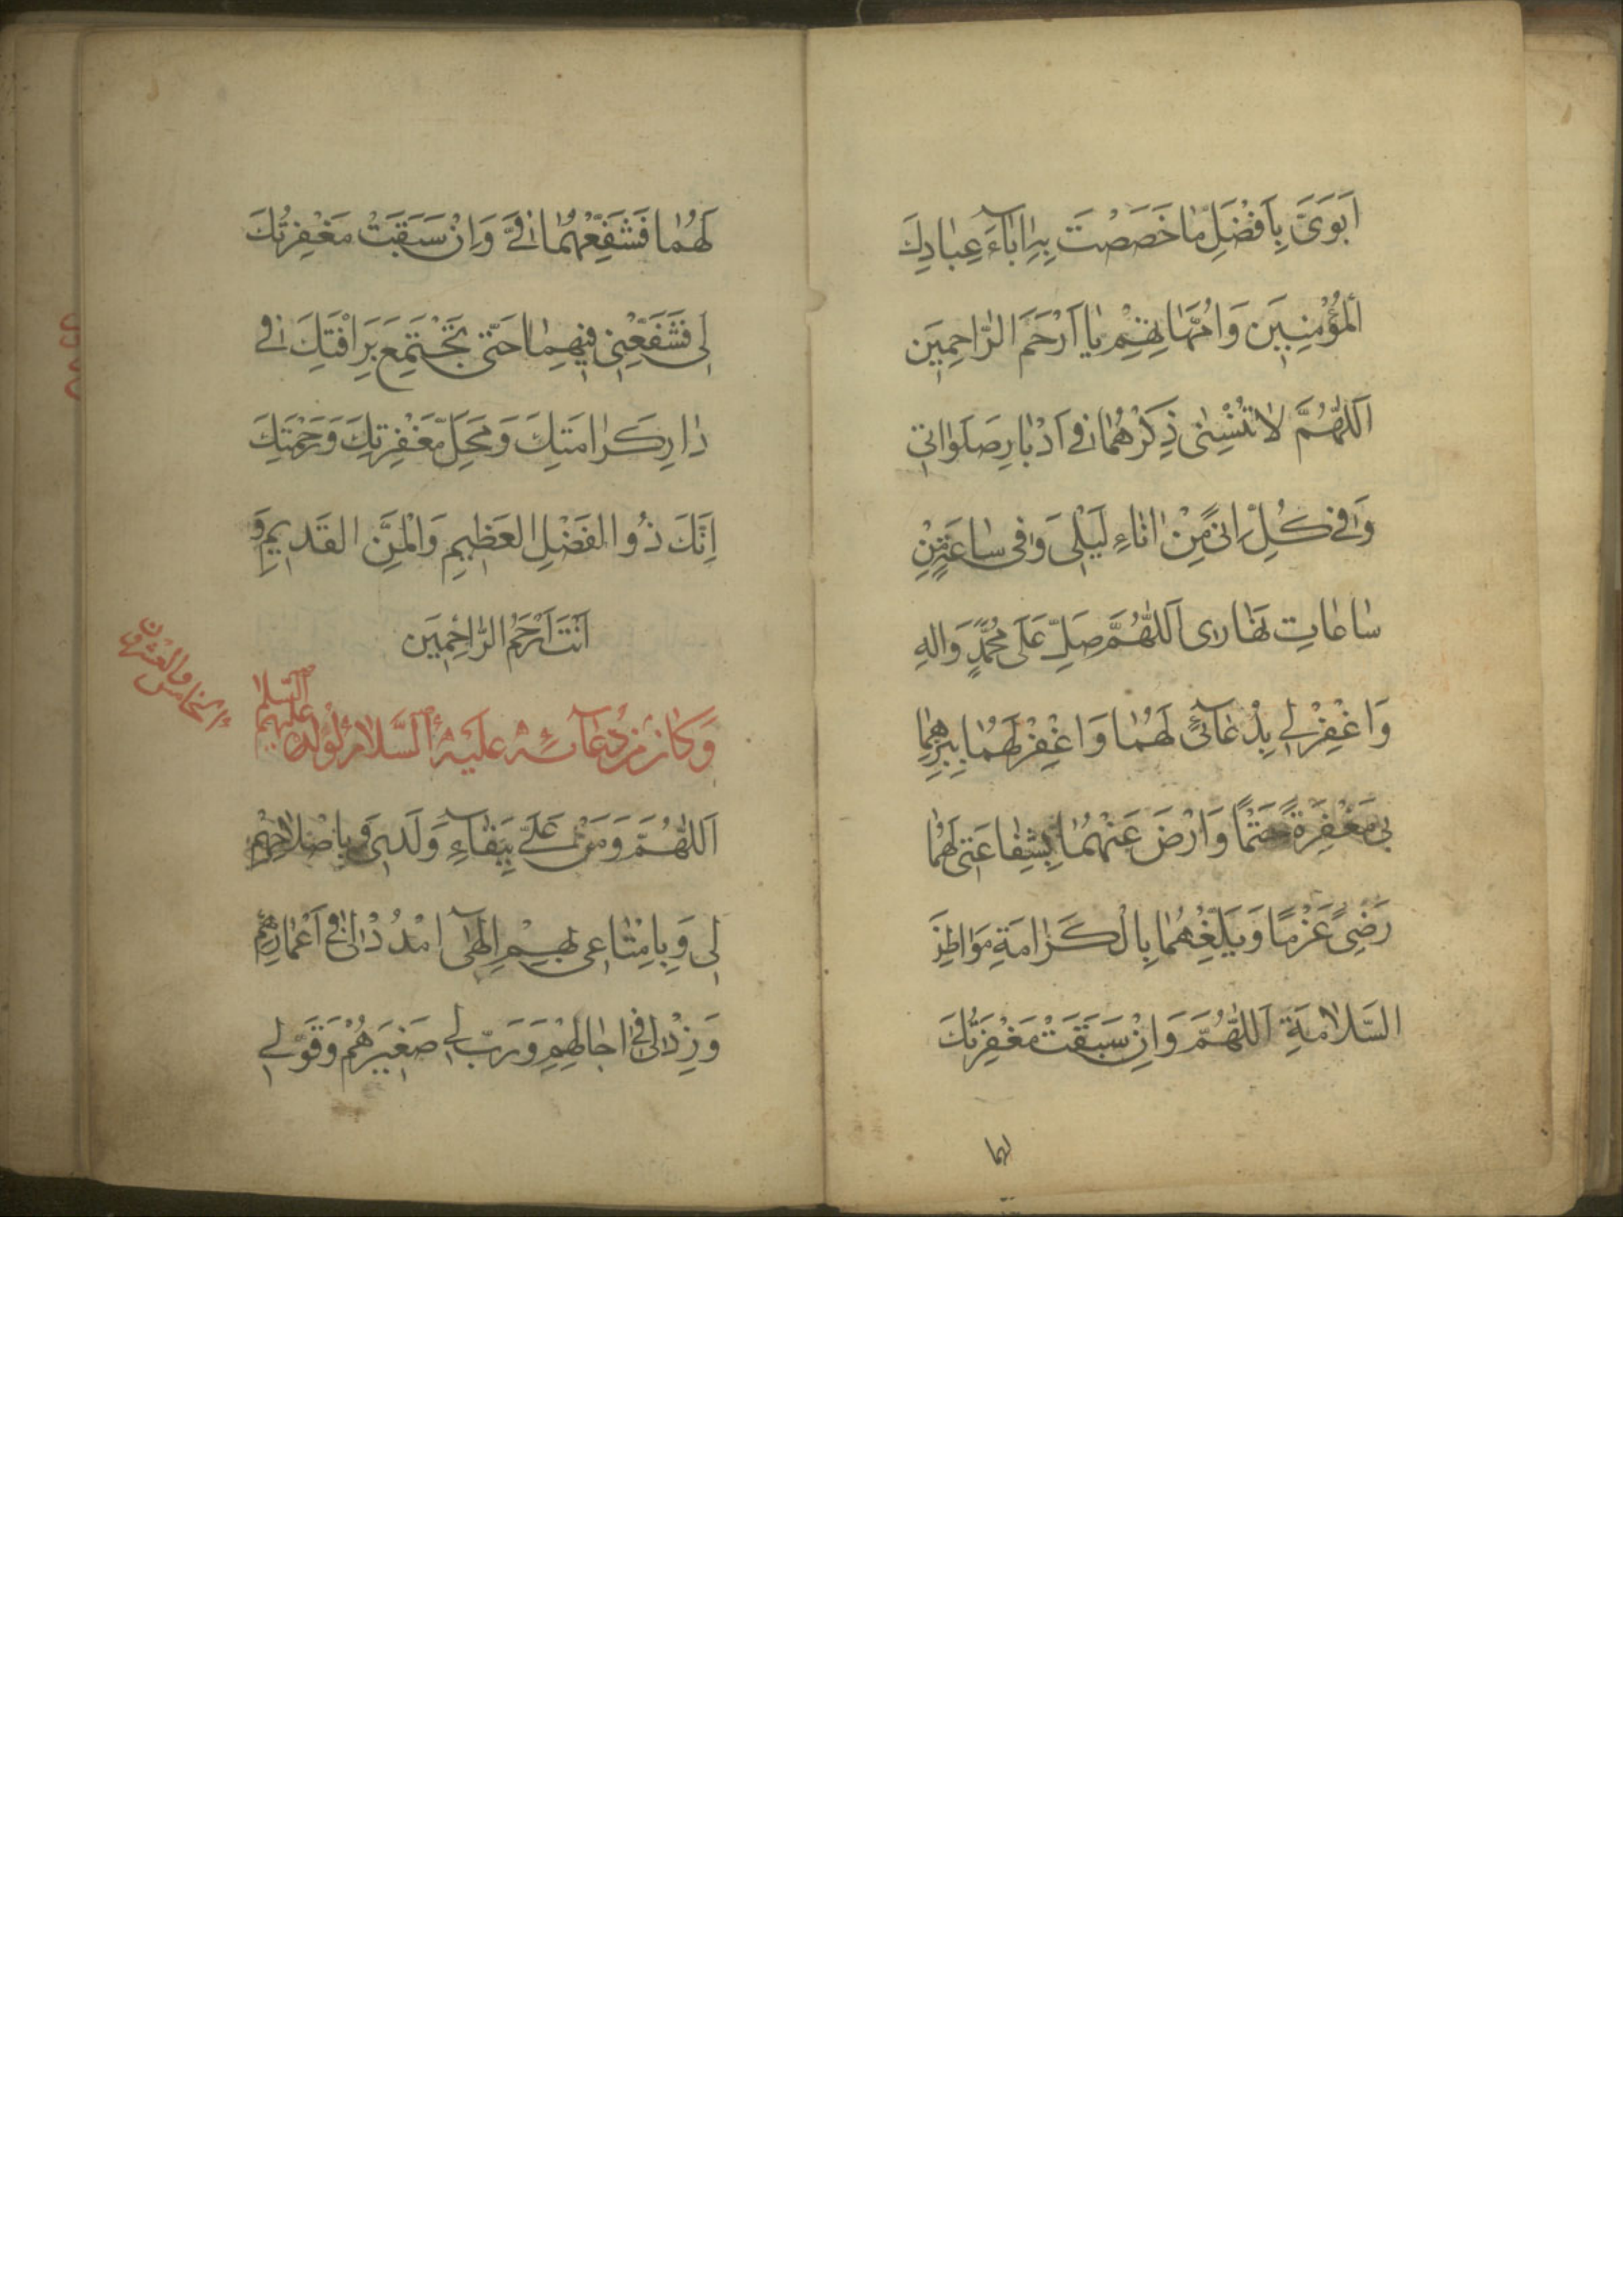 اَبَوَیَّ بِاَفْضَلِ مٰا خَصَصْتَ بِهِ اٰبٰآءَ عِبٰادِكَ
اَلْمُؤْمِنِینَ وَاُمَّهٰاتِهِمْ یٰا اَرْحَمَ الرّٰاحِمِینَ
اَللّٰهُمَّ لاٰ تُنْسِنٰی ذِكْرَهُمٰا فٰی اَدْبٰارِ صَلَوٰاتٰی
وَفٰی كُلِّ اٰنًی مِنْ اٰنٰاءِ لَیْلٰی وَفٰی سٰاعَةٍ مِنْ
سٰاعٰاتِ نَهٰارٰی اَللّٰهُمَّ صَلِّ عَلٰی مُحَمَّدٍ وَاٰلِهِ
وَاغْفِرْ لٰی بِدُعٰآئٰی لَهُمٰا وَاغْفِرْ لَهُمٰا بِبِرِّهِمٰا
بٰی مَغْفِرَةً حَتْمًا وَارْضَ عَنْهُمٰا بِشَفٰاعَتٰی لَهُمٰا
رَضًی عَزْمًا وَبَلِّغْهُمٰا بِالْكَرٰامَةِ مَوٰاطِنَ
السَّلاٰمَةِ اَللّٰهُمَّ وَاِنْ سَبَقَتْ مَغْفِرَتُكَ
لهما
لَهُمٰا فَشَفِّعْهُمٰا فٰیَّ وَاِنْ سَبَقَتْ مَغْفِرَتُكَ
لٰی فَشَفِّعْنٰی فٰیهِمٰا حَتّٰی نَجْتَمِعَ بِرَاْفَتِكَ فٰی
دٰارِ كَرٰامَتِكَ وَمَحَلِّ مَغْفِرَتِكَ وَرَحْمَتِكَ
اِنَّكَ ذُو الفَضْلِ العَظٰیمِ وَالْمَنِّ القَدٰیمِ وَ
اَنْتَ اَرْحَمُ الرّٰاحِمٰینَ
الخامس والعشرون
وَكٰانَ مِنْ دُعٰآئِهِ عَلَیْهِ السَّلاٰمُ لِوُلْدِهِ عليهم السلام
اَللّٰهُمَّ وَمُنَّ عَلَیَّ بِبَقٰآءِ وَلَدٰی وَبِاِصْلاٰحِهِمْ
لٰی وَبِاِمْتٰاعٰی بِهِمْ اِلٰهٰی امْدُدْ لٰی فٰی اَعْمٰارِهِمْ
وَزِدْ لٰی فٰی اٰجٰالِهِمْ وَرَبِّ لٰی صَغٰیرَهُمْ وَقَوِّ لٰی